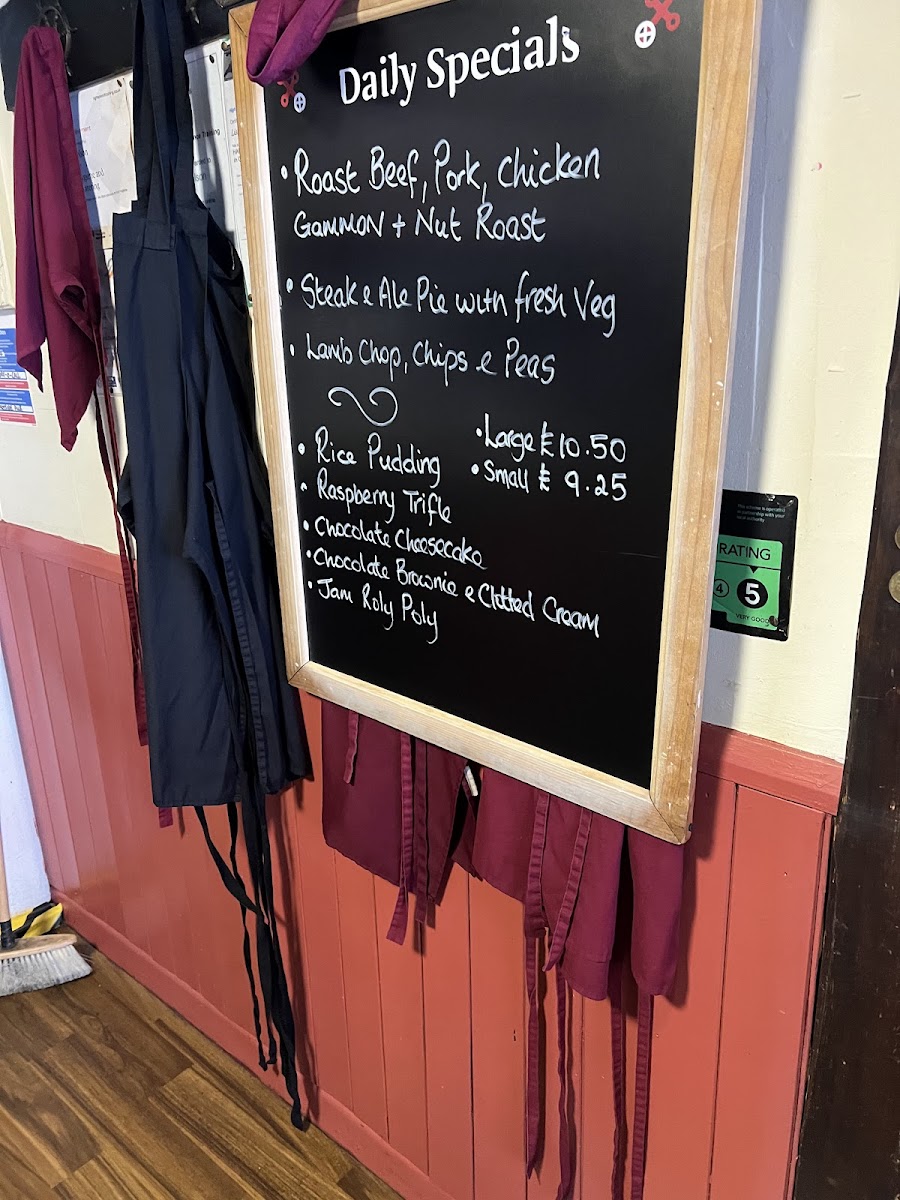 Daily Specials
• Roast Beef, Pork, Chicken
Gammon + Nut Roast
• Steak & Ale Pie with fresh Veg
• Lamb Chop, Chips & Peas
• Large £10.50
• Small £ 9.25
• Rice Pudding
• Raspberry Trifle
• Chocolate Cheesecake
• Chocolate Brownie & Clotted Cream
• Jam Roly Poly
The scheme is operated
in partnership with your
local authority
RATING
4 5
VERY GOOD